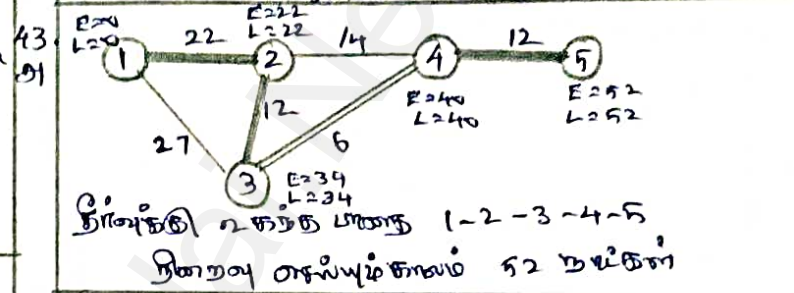 43.
அ)
E=0
L=0
E=22
L=22
1
22
2
14
4
12
5
12
27
6
E=40
L=40
E=52
L=52
3
E=34
L=34
தீர்வுக்கு உகந்த பாதை 1-2-3-4-5
நிறைவு செய்யும் காலம் 52 நாட்கள்